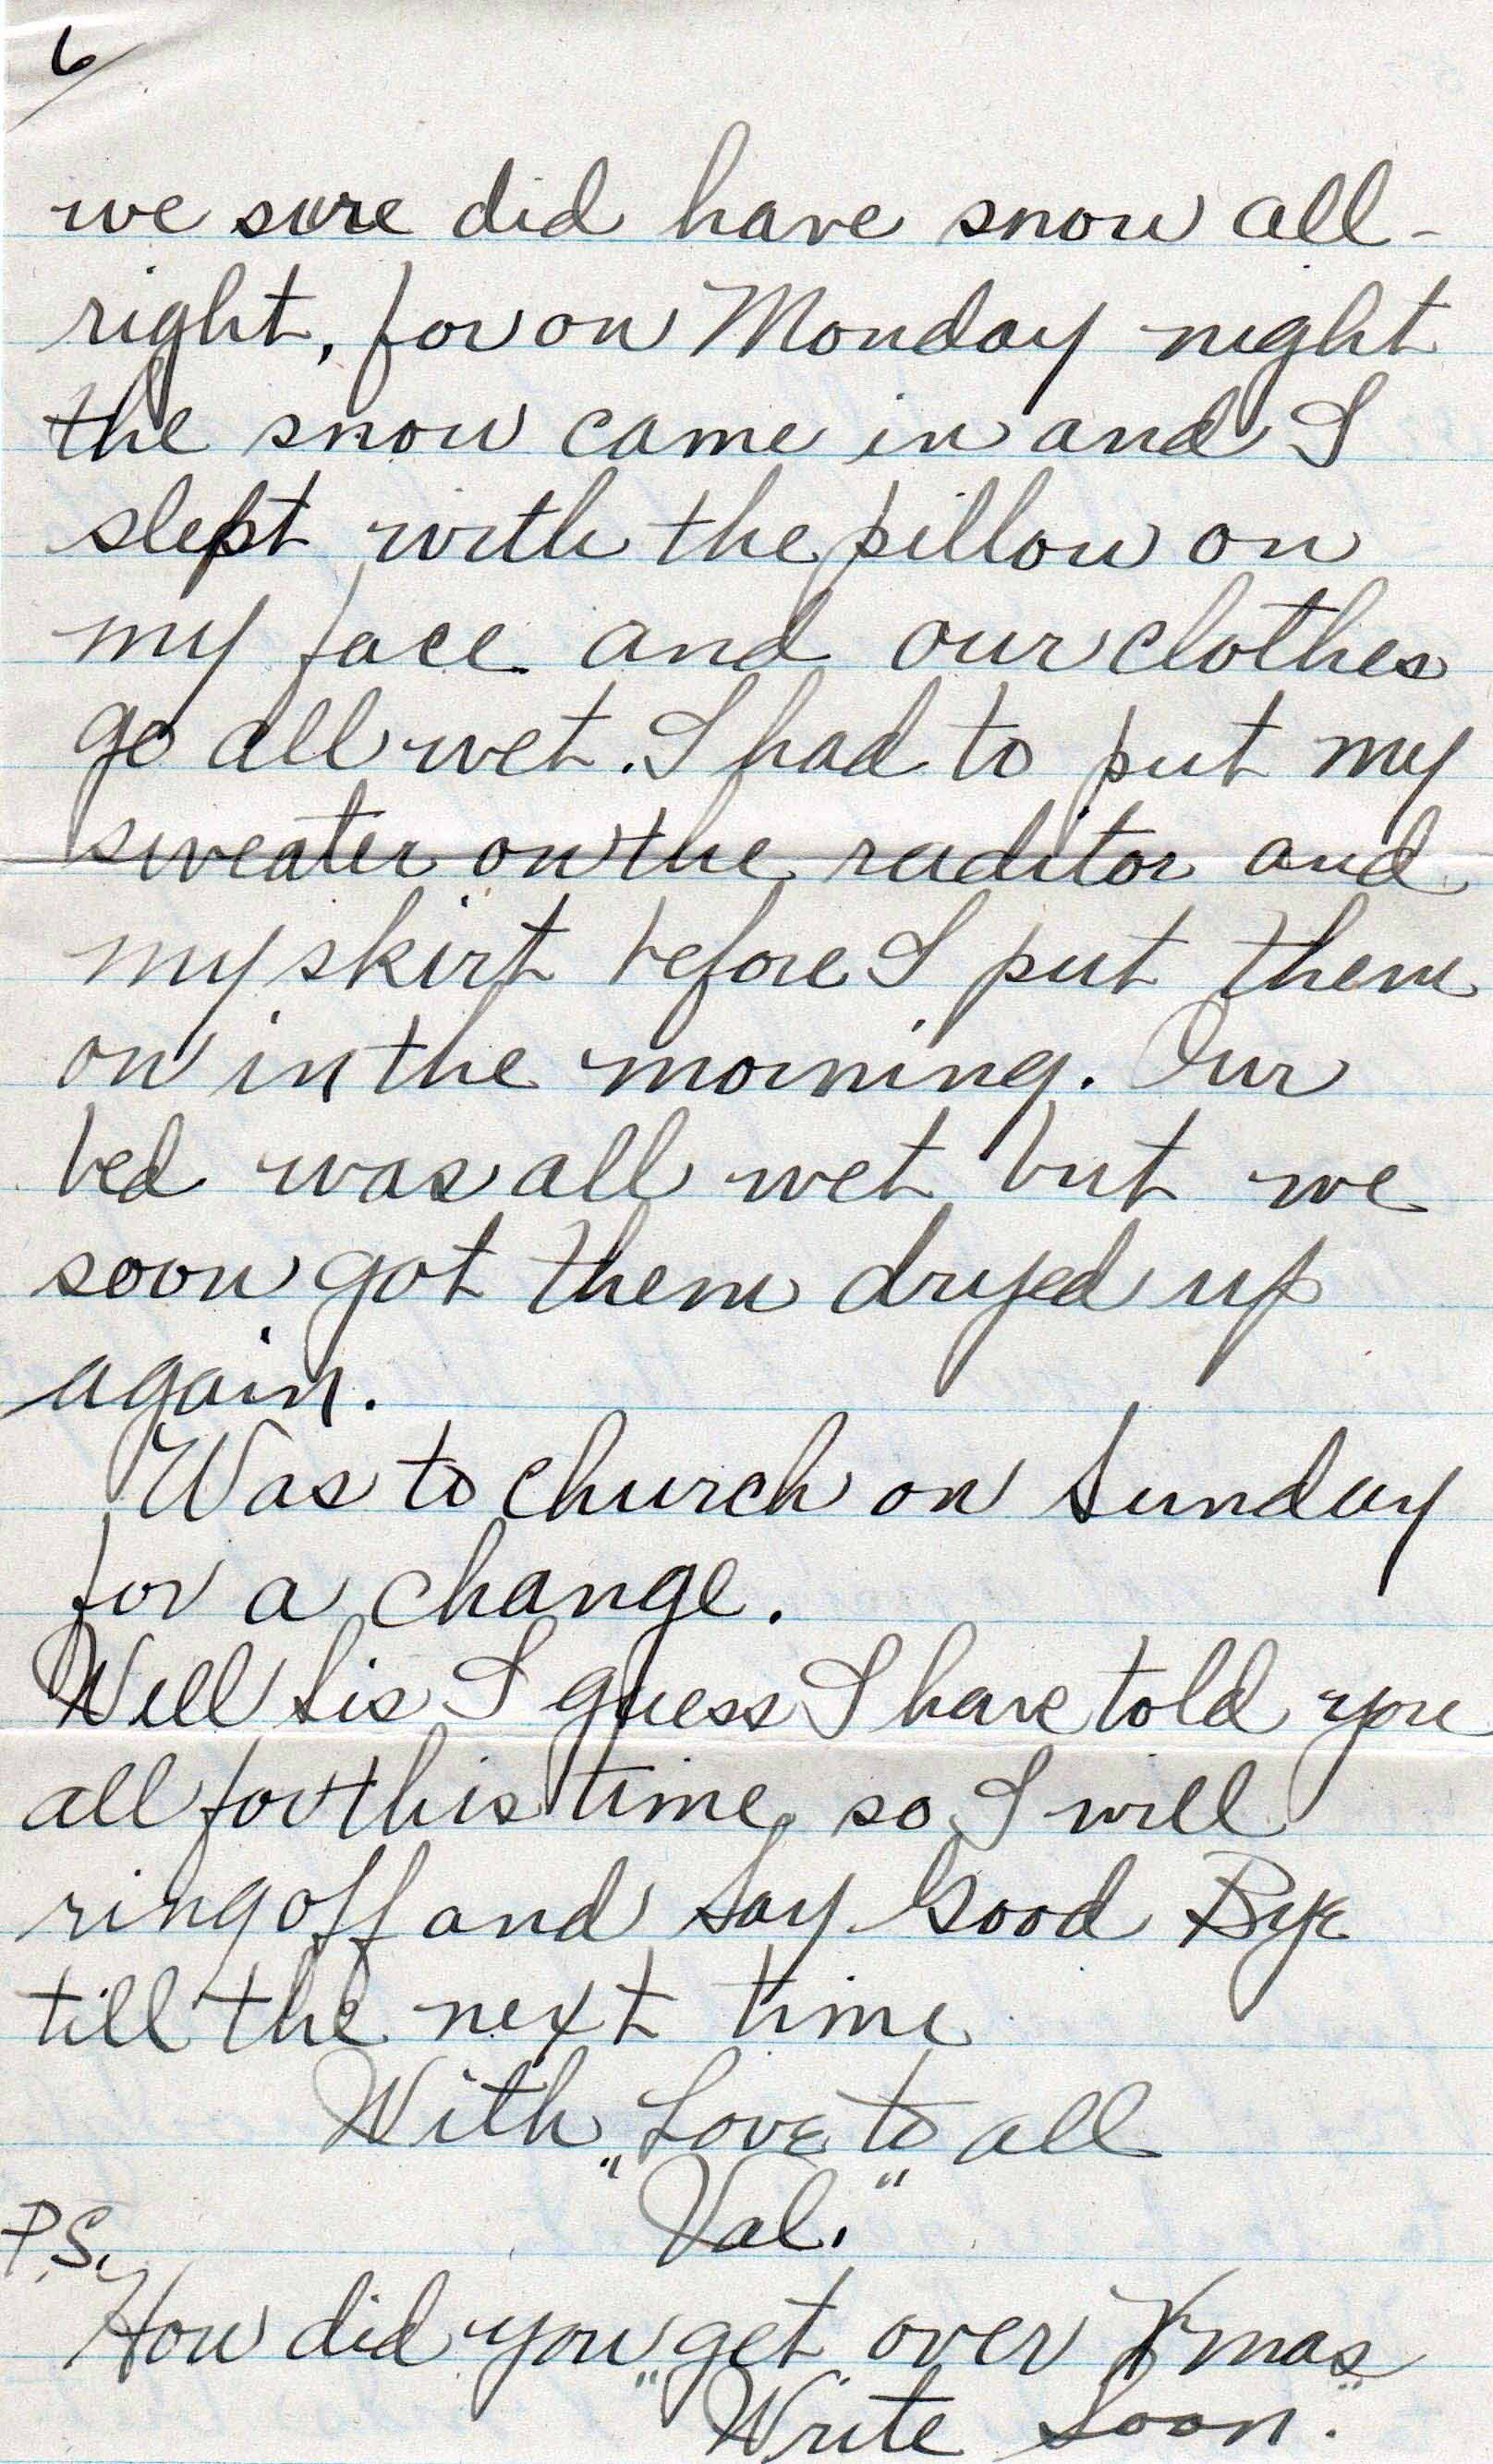 6/
we sure did have snow all-
right, for on Monday night
the snow came in and I
slept with the pillow on
my face and our clothes
go all wet. I had to put my
sweater on the raditor and
my skirt before I put them
on in the morning. Our
bed was all wet but we
soon got them dryed up
again.
Was to church on Sunday
for a change.
Well Sis I guess I have told you
all for this time so I will
ring off and say Good Bye
till the next time
With Love to all
"Val."
P.S.
How did you get over Xmas
"Write Soon."